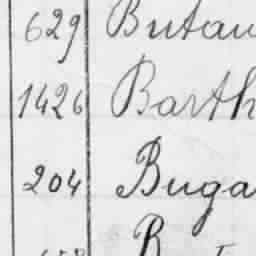 629 Butau
1426 Barth
204 Buga